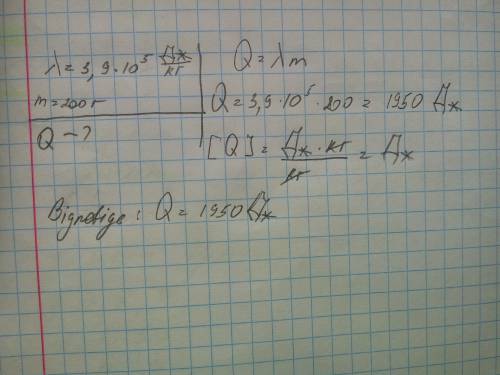 λ = 3,9 · 10⁵ Дж/кг
m = 200 г
Q – ?
Q = λm
Q = 3,9 · 10⁵ · 200 = 1950 Дж
[Q] = Дж · кг / кг = Дж
Відповідь: Q = 1950 Дж